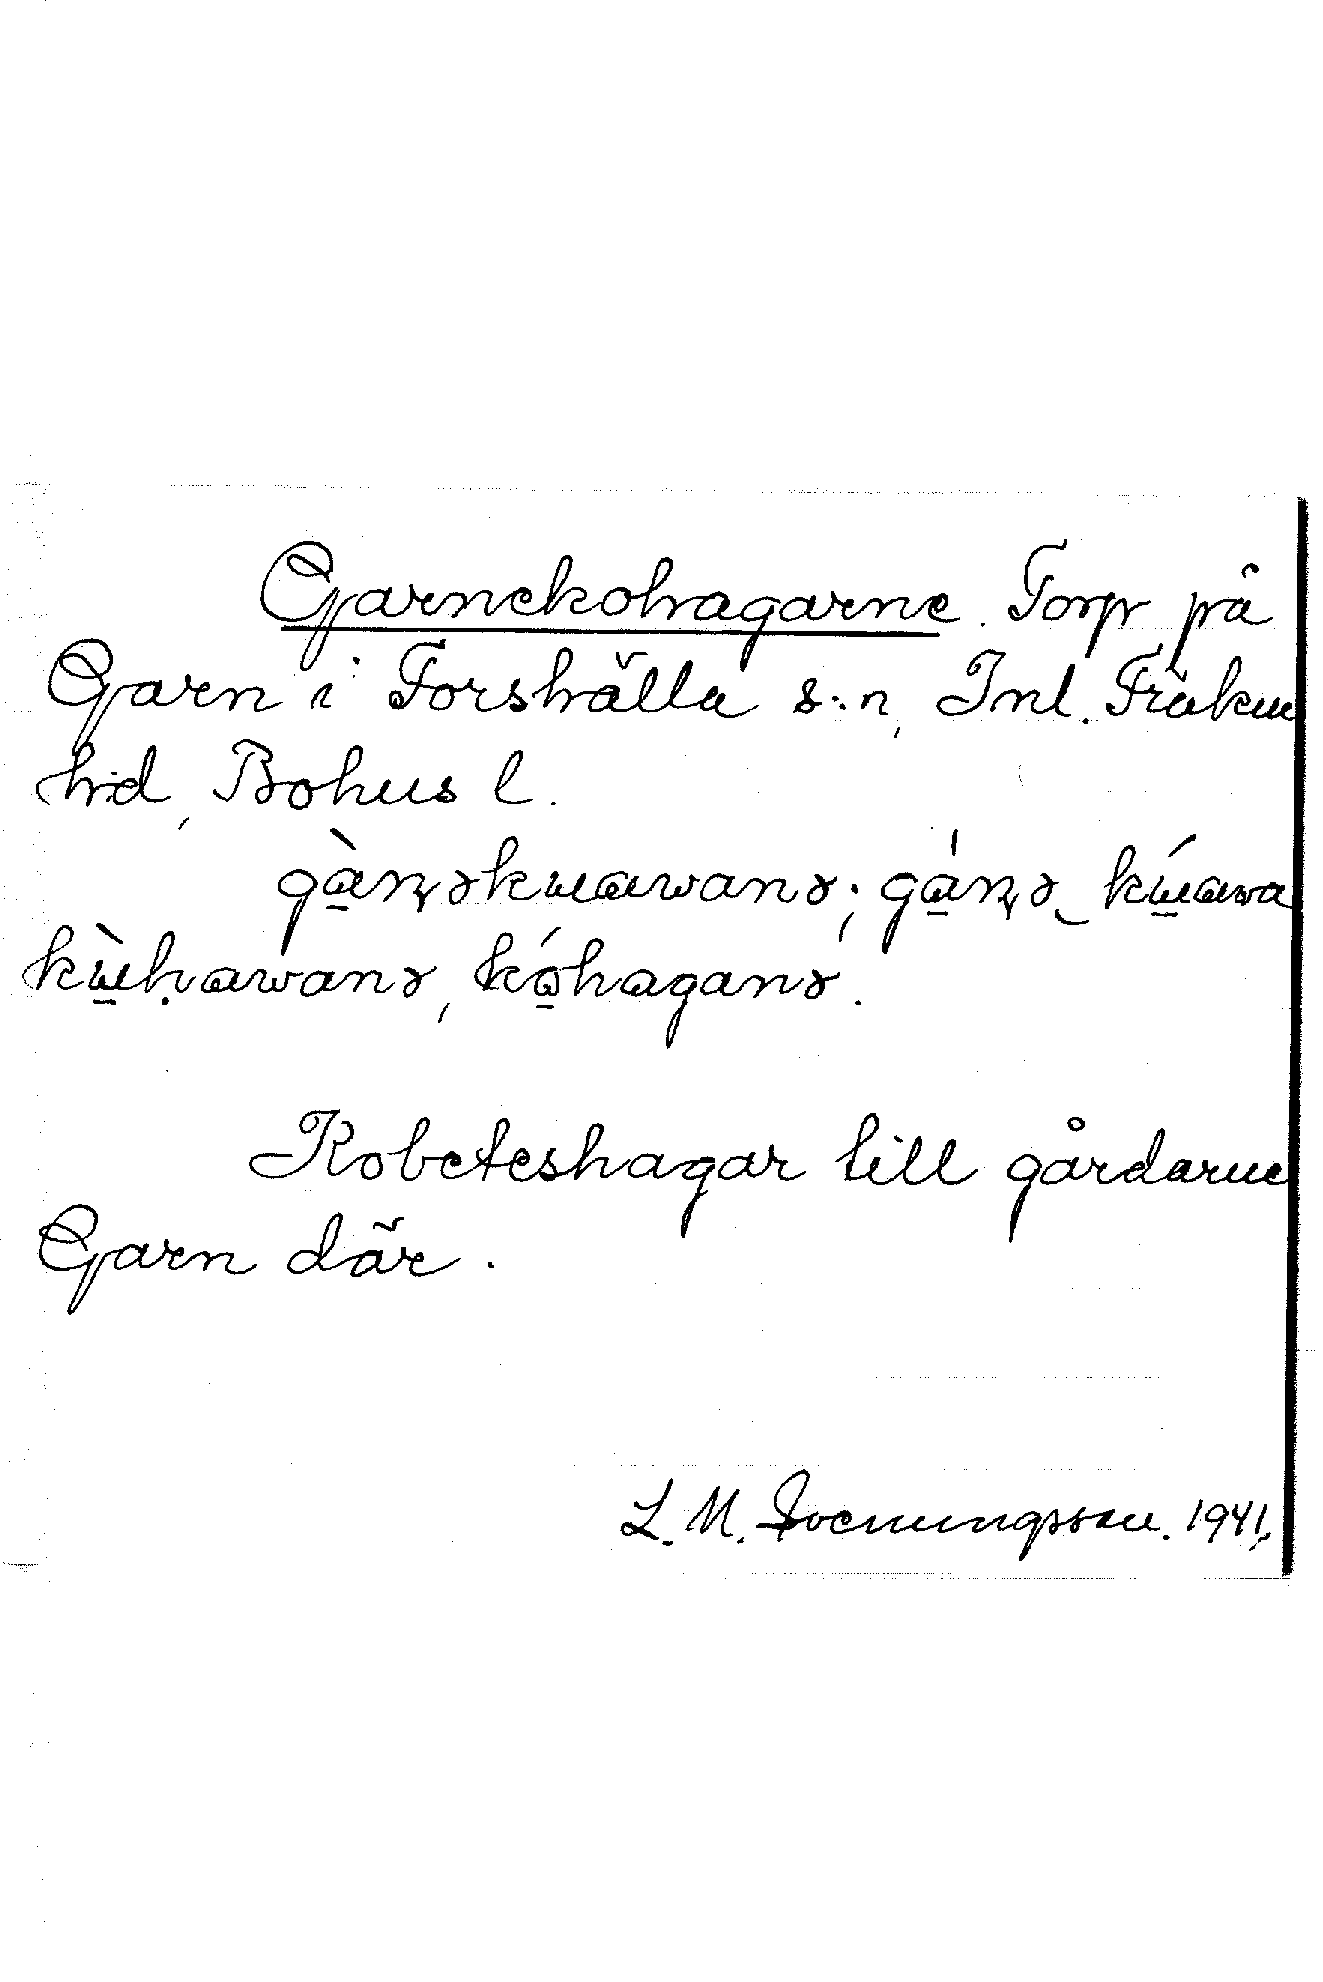 Garnekohagarne. Torp på
Garn i Forshälla s:n, Inl. Fräkne
hd, Bohus l.
gàṇəkɯawanə; gáṇə kɯ́awa
kɯ̀ḥawanə, kóhaganə.
Kobeteshagar till gårdarne
Garn där.
L. M. Svenungsson. 1941.